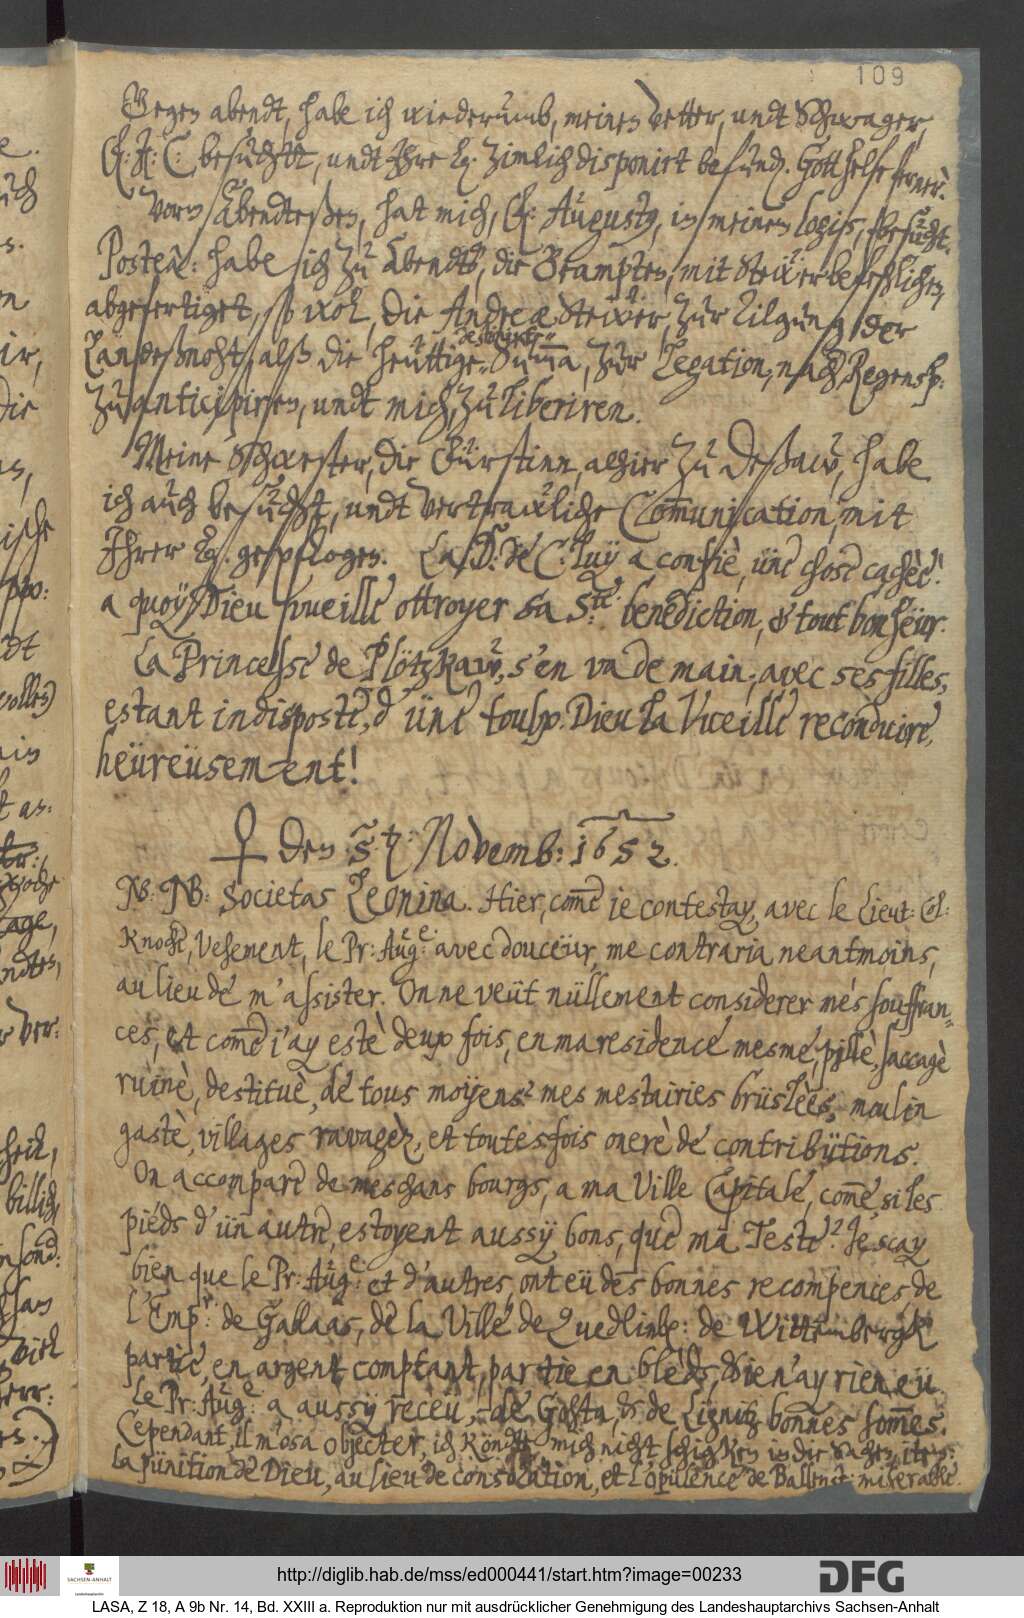 109
Gegen abendt, habe ich wiederumb, meinen Vetter, undt Schwager,
F: J: C: besucht, undt Ihre L. zimlich disponirt befunden. Gott helfe ferner.
Vorm Abendteßen, hat mich, F: Augustus, in meinem logis, besucht.
Posteà: habe ich zu Abendts, die Beampten, mit Steüer befehlichen,
abgefertiget, so wol, die Andere Steüer, zur Tilgung der
Landeßnoht, alß die heüttige Summa, zur Legation, nach Regensp:
zu anticipiren, undt mich, zu liberiren.
Meine Schwester, die Fürstinn, alhier zu Deßaw, habe
ich auch besucht, undt vertrawliche Communication, mit
Ihrer L. gepflogen. La D. de C. luy a confiè, üne chose cachèe!
a quoy Dieu vueille ottroyer Sa Ste: benediction, & tout bonheür.
La Princesse de Plötzkaw, s'en va demain, avec ses filles,
estant indisposte, d'üne toulx. Dieu la vueille reconduire,
heüreüsement!
♀ den 5ten: Novemb: 1652.
NB: NB: Societas Leonina. Hier, come je contestay, avec le Lieut: Col:
Knoche, vehement, le Pr: Auge: avec douceür, me contraria neantmoins,
au lieu de m'assister. On ne veüt nüllement considerer mes souffran-
ces, et come j'ay estè deux fois, en ma residence mesme, pillè, saccagè
ruinè, destituè, de tous moyens, mes mestairies brüslèes, moulin
gastè, villages ravagèz, et toutesfois onerè de contribütions.
On accompare de meschans bourgs, a ma Ville Capitale, come si les
pieds d'ün autre, estoyent aussy bons, que ma Teste? Je sçay
bien que le Pr: Auge: et d'autres, ont eü des bonnes recompences, de
l'Empr: de Gallaas, de la Ville de Quedlinb: de Wittembergk
partie, en argent comptant, partie en bleds, & je n'ay rien eü.
Le Pr: Auge: a aussy receü, de Gotha, & de Lignitz bonnes somes.
Cependant, il m'osa objecter, ich köndte mich nicht schigken in die Sachen, item:
la pünition de Dieu, au lieu de consolation, et l'opulence de Ballenst: miserable.
http://diglib.hab.de/mss/ed000441/start.htm?image=00233
SACHSEN-ANHALT
DFG
LASA, Z 18, A 9b Nr. 14, Bd. XXIII a. Reproduktion nur mit ausdrücklicher Genehmigung des Landeshauptarchivs Sachsen-Anhalt